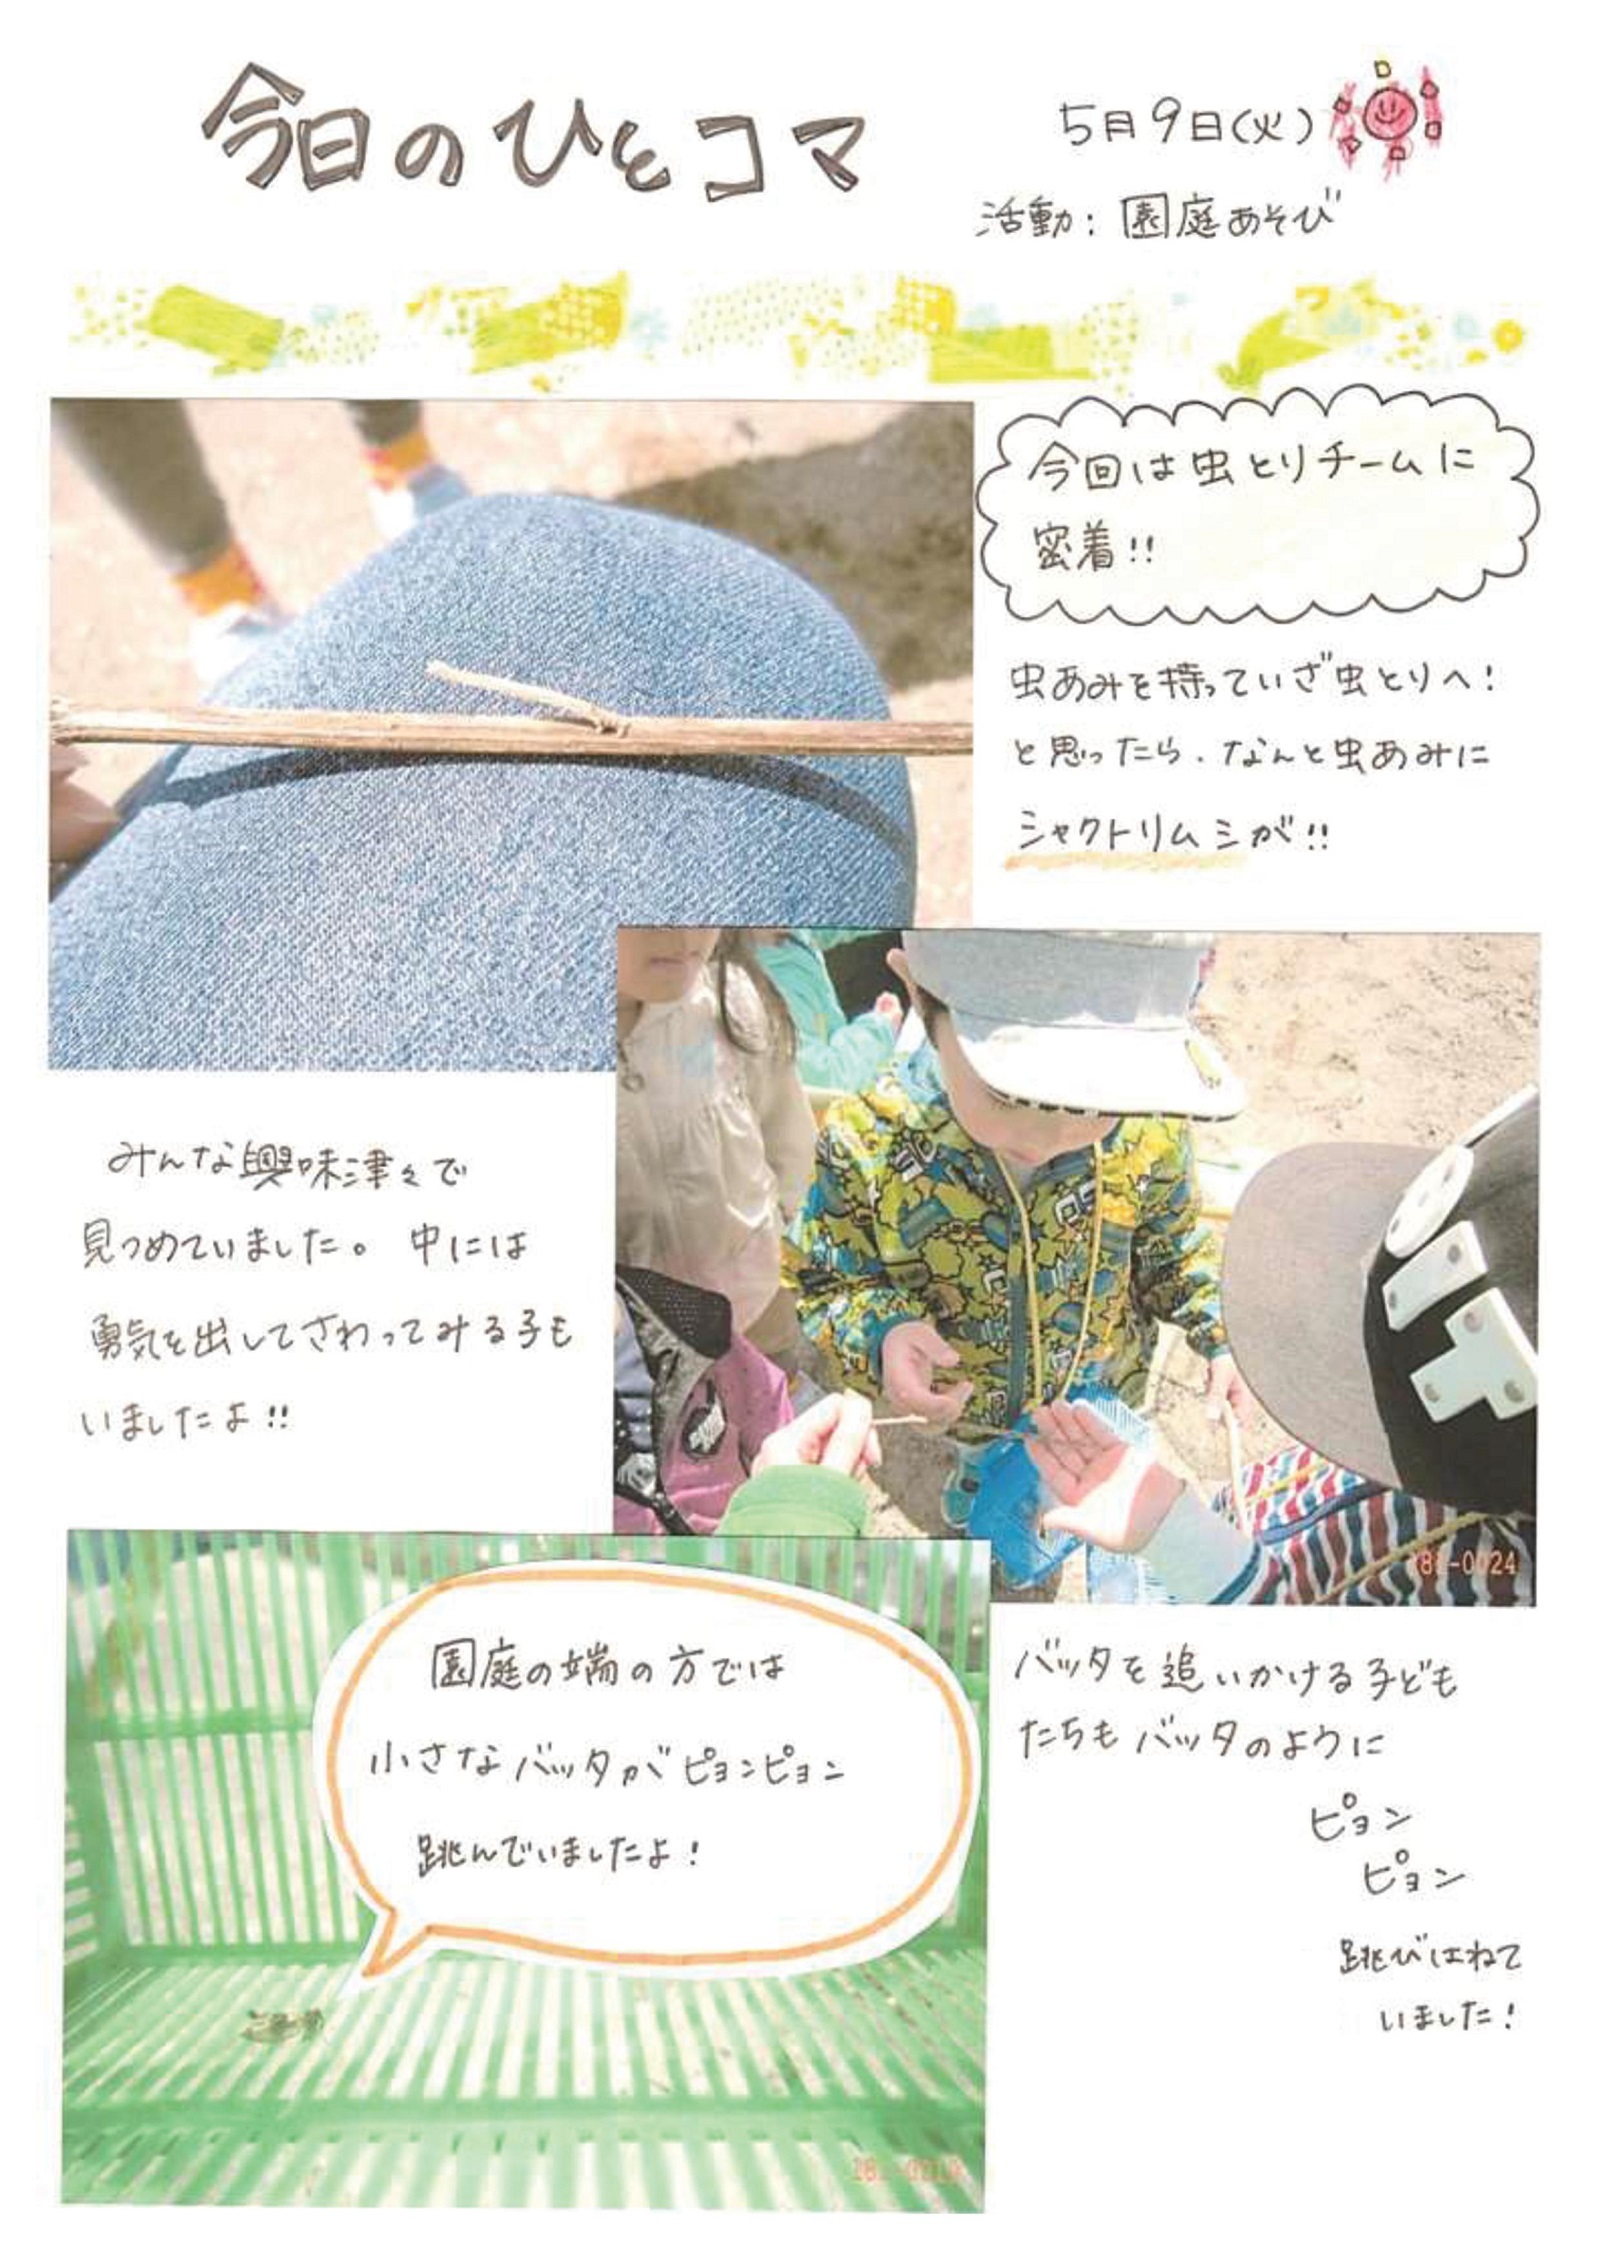 今日のひとコマ
5月9日(火)
活動：園庭あそび
今回は虫とりチームに
密着!!
虫あみを持っていざ虫とりへ!
と思ったら、なんと虫あみに
シャクトリムシが!!
みんな興味津々で
見つめていました。中には
勇気を出してさわってみる子も
いましたよ!!
園庭の端の方では
小さなバッタがピョンピョン
跳んでいましたよ!
バッタを追いかける子ども
たちもバッタのように
ピョン
ピョン
跳びはねて
いました!